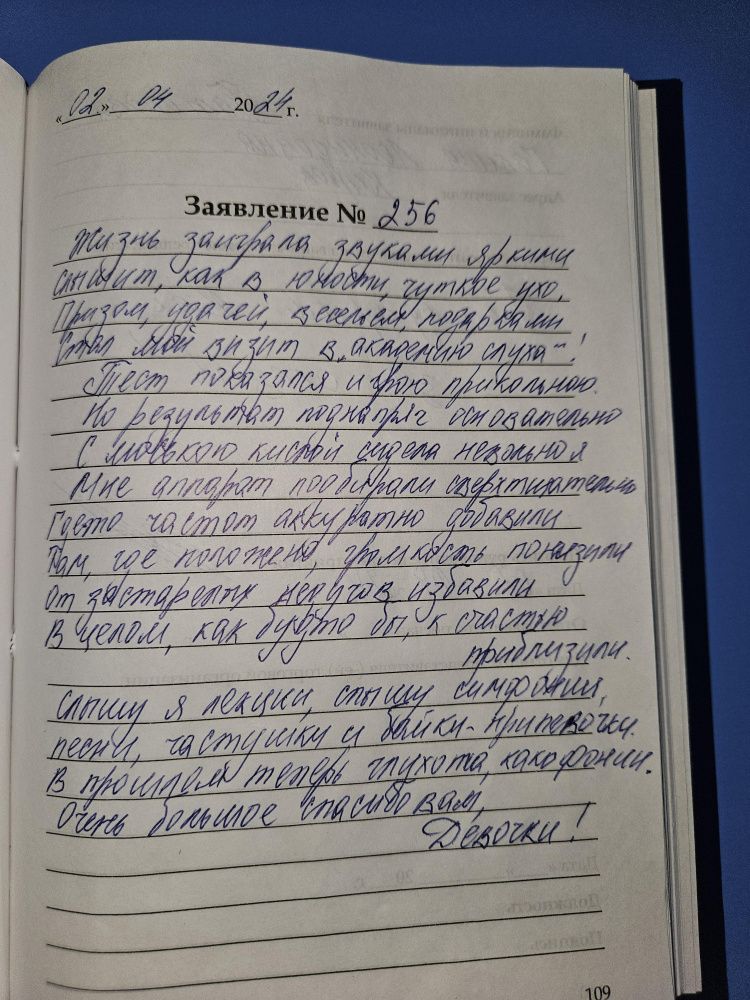 «02» 04 2024 г.
Заявление № 256
Жизнь заиграла звуками яркими
слышит, как в юности, чуткое ухо,
Призом, удачей, весельем, подарками
Стал мой визит в „академию слуха“!
Тест показался игрою прикольною.
Но результат поднапряг основательно
С моською кислой сидела невольно я
Мне аппарат подбирали сверхтщательно
Где-то частот аккуратно добавили
Там, где положено, громкость понизили
От застарелых недугов избавили
В целом, как будто бы, к счастью
приблизили.
Слышу я лекции, слышу симфонии,
песни, частушки и байки-припевочки.
В прошлом теперь глухота, какофонии.
Очень большое спасибо вам,
Девочки!
109